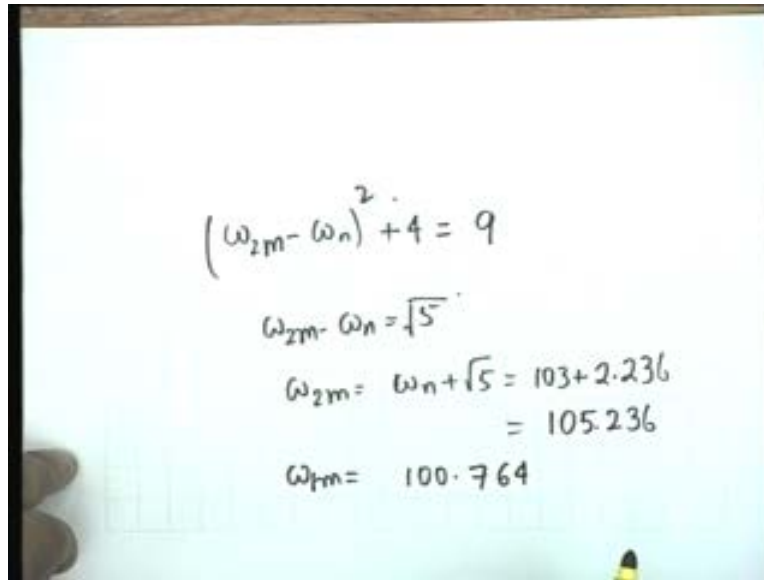 (ω₂ₘ - ωₙ)² + 4 = 9
ω₂ₘ - ωₙ = √5
ω₂ₘ = ωₙ + √5 = 103 + 2.236
= 105.236
ω₁ₘ = 100.764